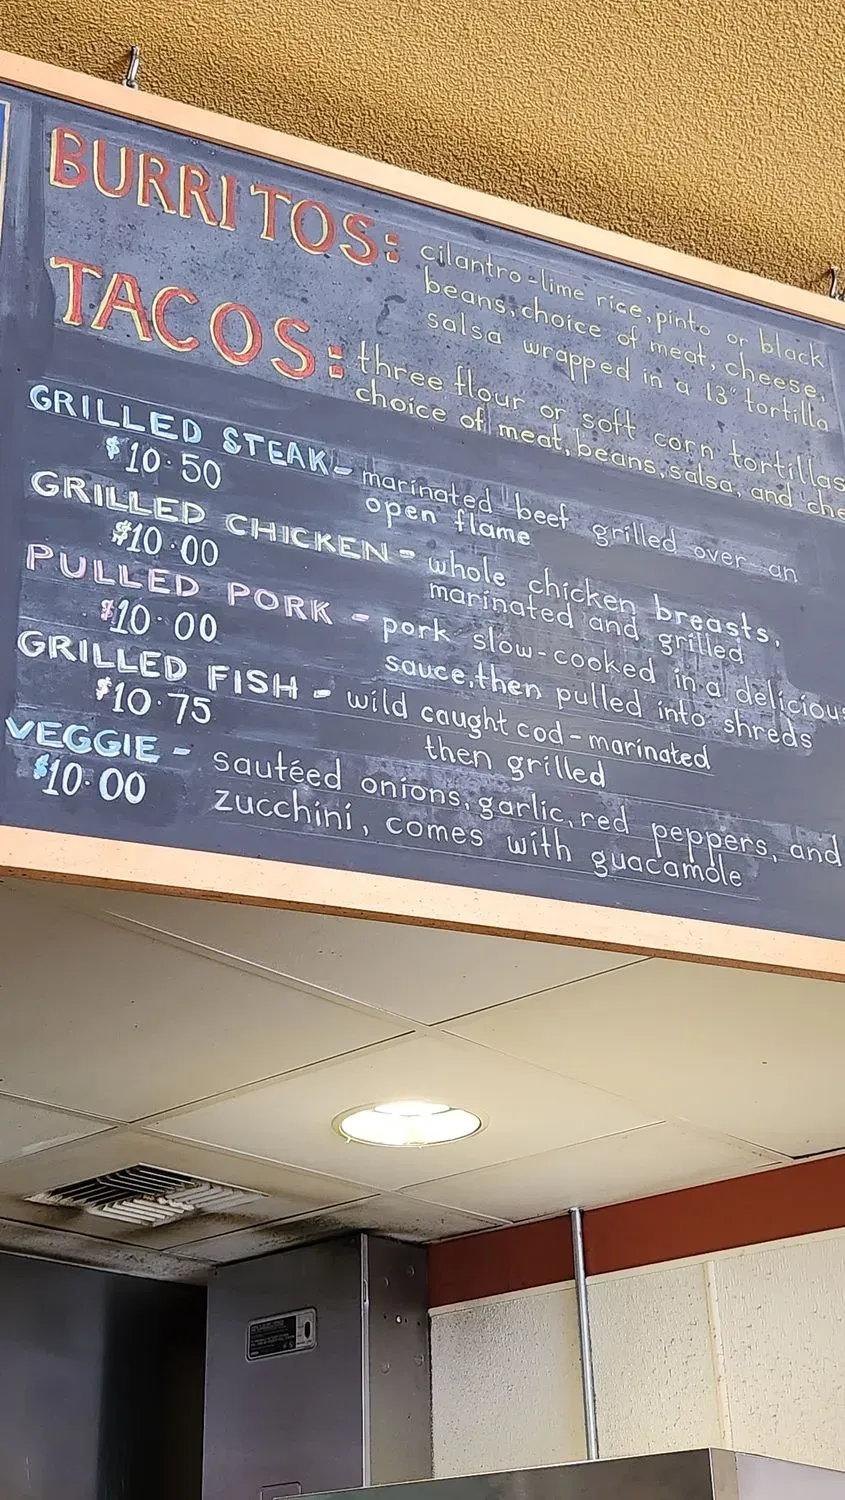 BURRITOS: cilantro-lime rice, pinto or black
beans, choice of meat, cheese,
salsa wrapped in a 13" tortilla
TACOS: three flour or soft corn tortillas
choice of meat, beans, salsa, and che
GRILLED STEAK- marinated beef grilled over an
$10.50 open flame
GRILLED CHICKEN - whole chicken breasts,
$10.00 marinated and grilled
PULLED PORK - pork slow-cooked in a delicious
$10.00 sauce, then pulled into shreds
GRILLED FISH - wild caught cod - marinated
$10.75 then grilled
VEGGIE - sautéed onions, garlic, red peppers, and
$10.00 zucchini, comes with guacamole